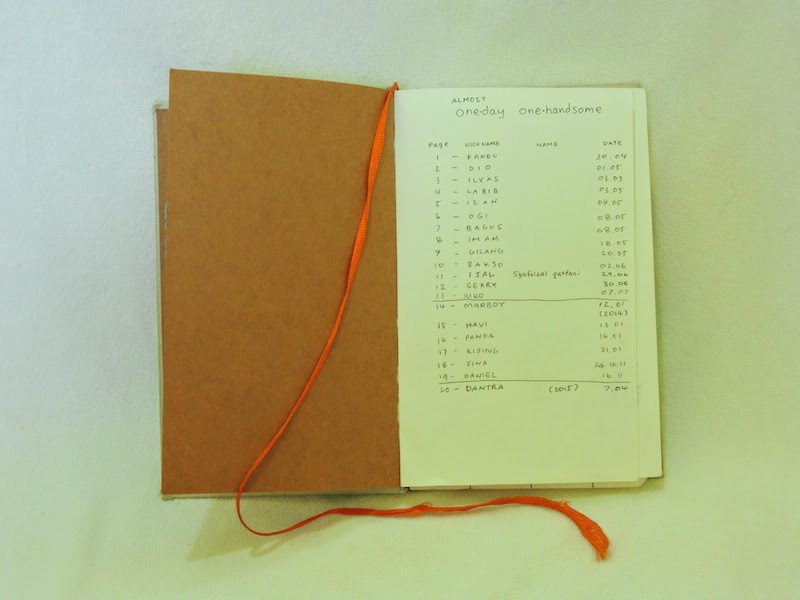 ALMOST
one·day one·handsome
PAGE NICKNAME NAME DATE
1 - PANDU 30.04
2 - DIO 01.05
3 - ILYAS 03.05
4 - LABIB 03.05
5 - IZAN 04.05
6 - OGI 08.05
7 - BAGUS 08.05
8 - IMAM 18.05
9 - GILANG 20.05
10 - BAKSO 02.06
11 - IJAL Syafrizal qattani 29.06
12 - GERRY 30.06
13 - RIKO 07.07
14 - MARBOT 12.01
(2014)
15 - HAVI 13.01
16 - PANDA 16.01
17 - KIJING 31.01
18 - JINA 16.11
19 - DANIEL 16.11
20 - DANTRA (2015) 7.04